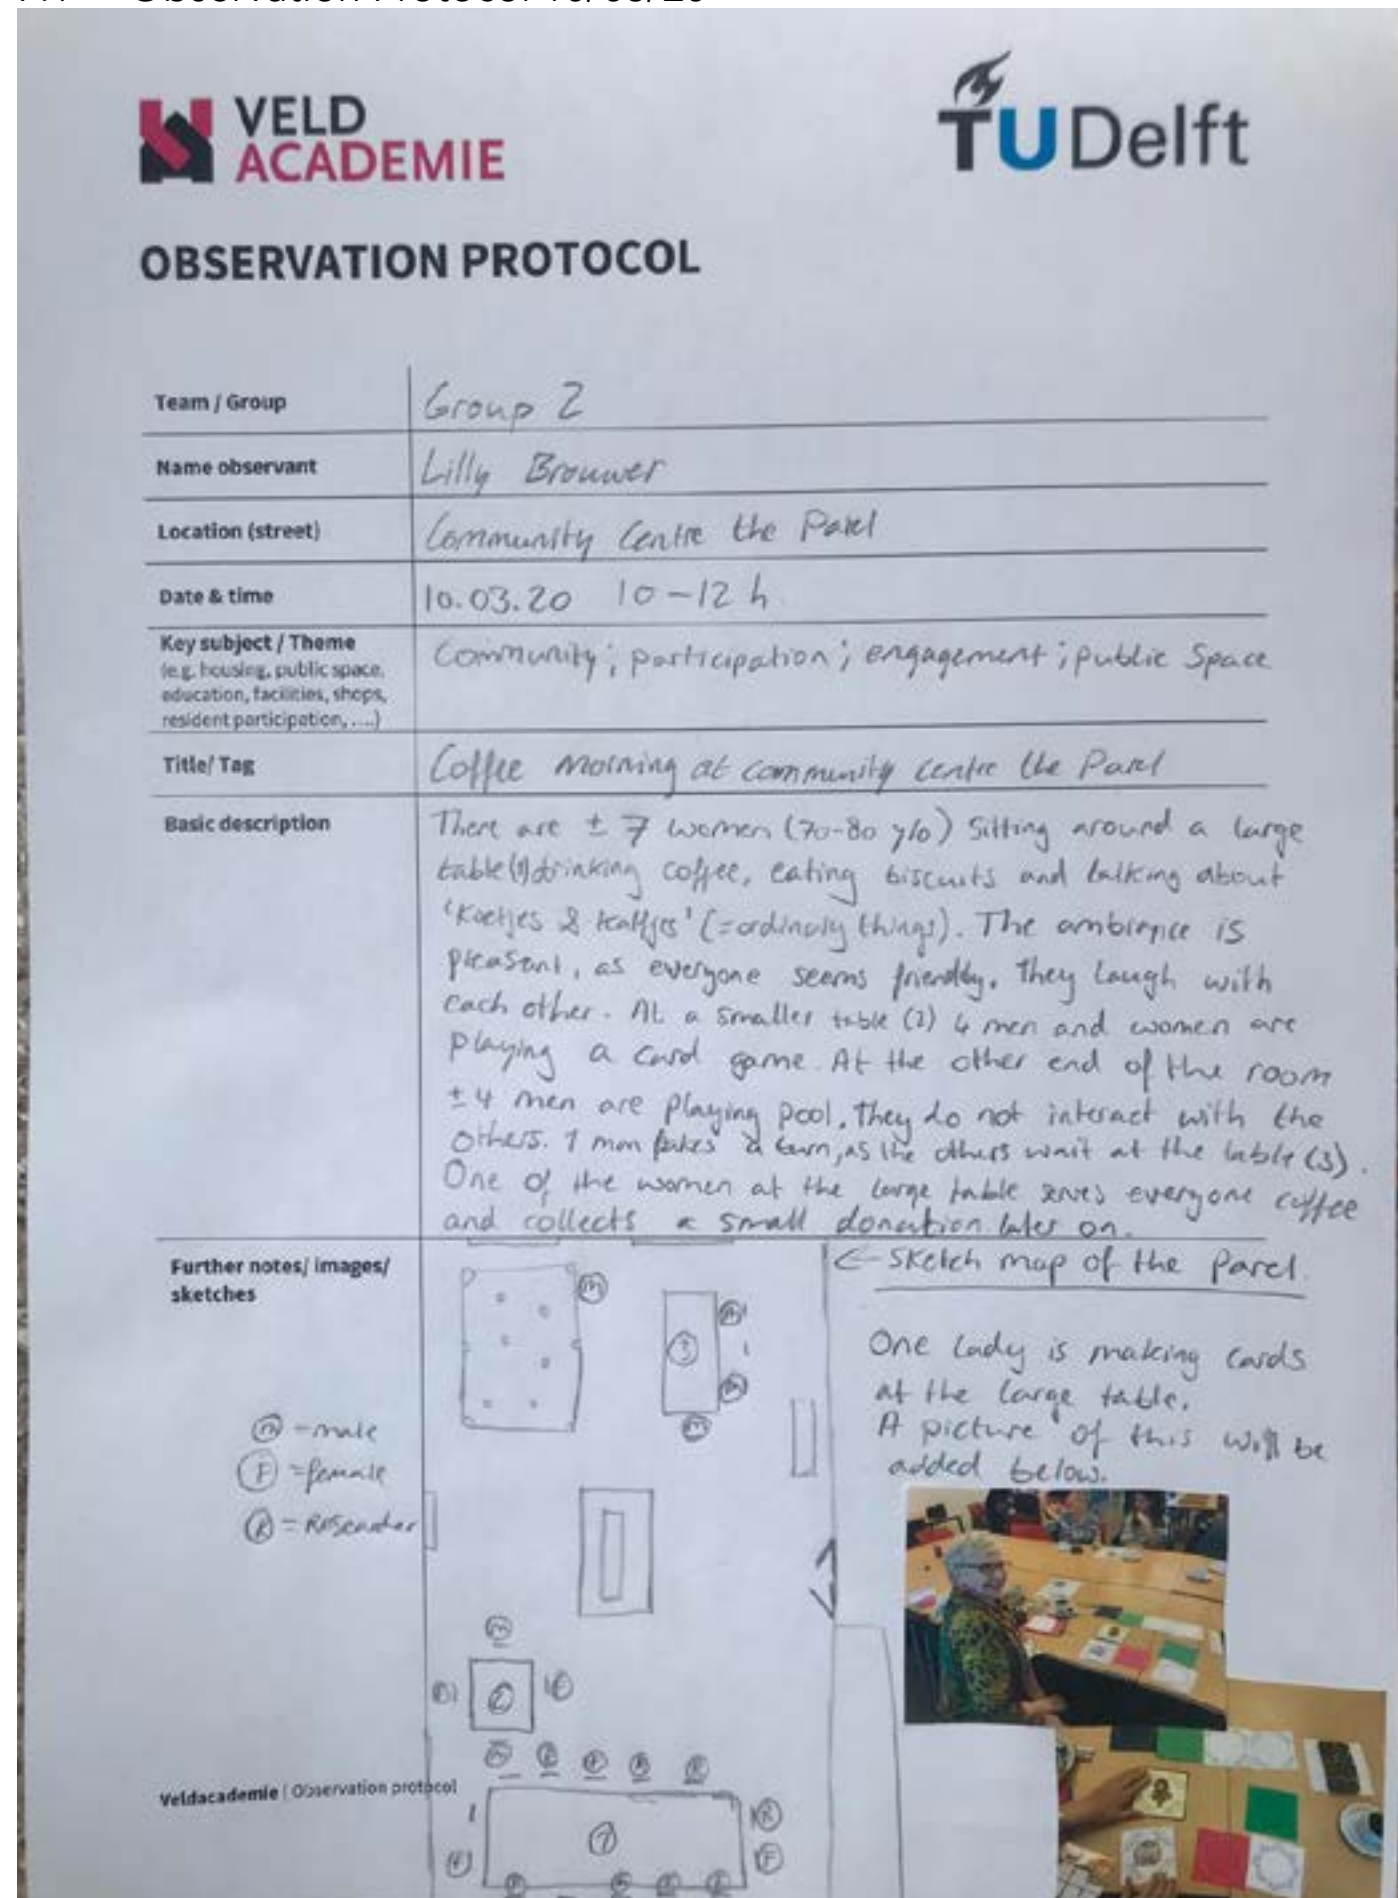 Observation Protocol 10/03/20
VELD
ACADEMIE
TU Delft
OBSERVATION PROTOCOL
Team / Group
Group 2
Name observant
Lilly Brouwer
Location (street)
Community Centre the Parel
Date & time
10.03.20 10-12 h
Key subject / Theme
(e.g. housing, public space,
education, facilities, shops,
resident participation, ....)
Community; participation; engagement; public Space
Title/ Tag
Coffee morning at community centre the Parel
Basic description
There are ± 7 women (70-80 y/o) sitting around a large
table (1) drinking coffee, eating biscuits and talking about
'Koetjes & kalfjes' (=ordinary things). The ambience is
pleasant, as everyone seems friendly. They laugh with
each other. At a smaller table (2) 4 men and women are
playing a card game. At the other end of the room
± 4 men are playing pool. They do not interact with the
others. 1 man takes a turn, as the others wait at the table (3).
One of the women at the large table serves everyone coffee
and collects a small donation later on.
Further notes/ images/
sketches
← Sketch map of the Parel.
One lady is making cards
at the large table.
A picture of this will be
added below.
M = male
F = female
R = Researcher
M
3
M
M
M
M
2
M
1
R
F
Veldacademie | Observation protocol